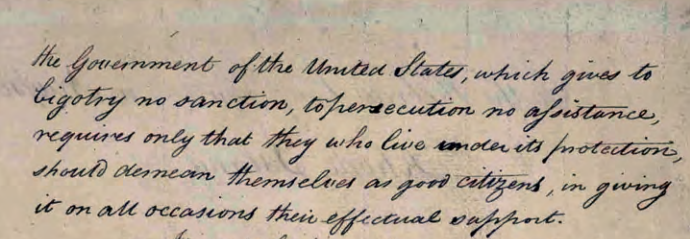 the Government of the United States, which gives to
bigotry no sanction, to persecution no assistance,
requires only that they who live under its protection,
should demean themselves as good citizens, in giving
it on all occasions their effectual support.